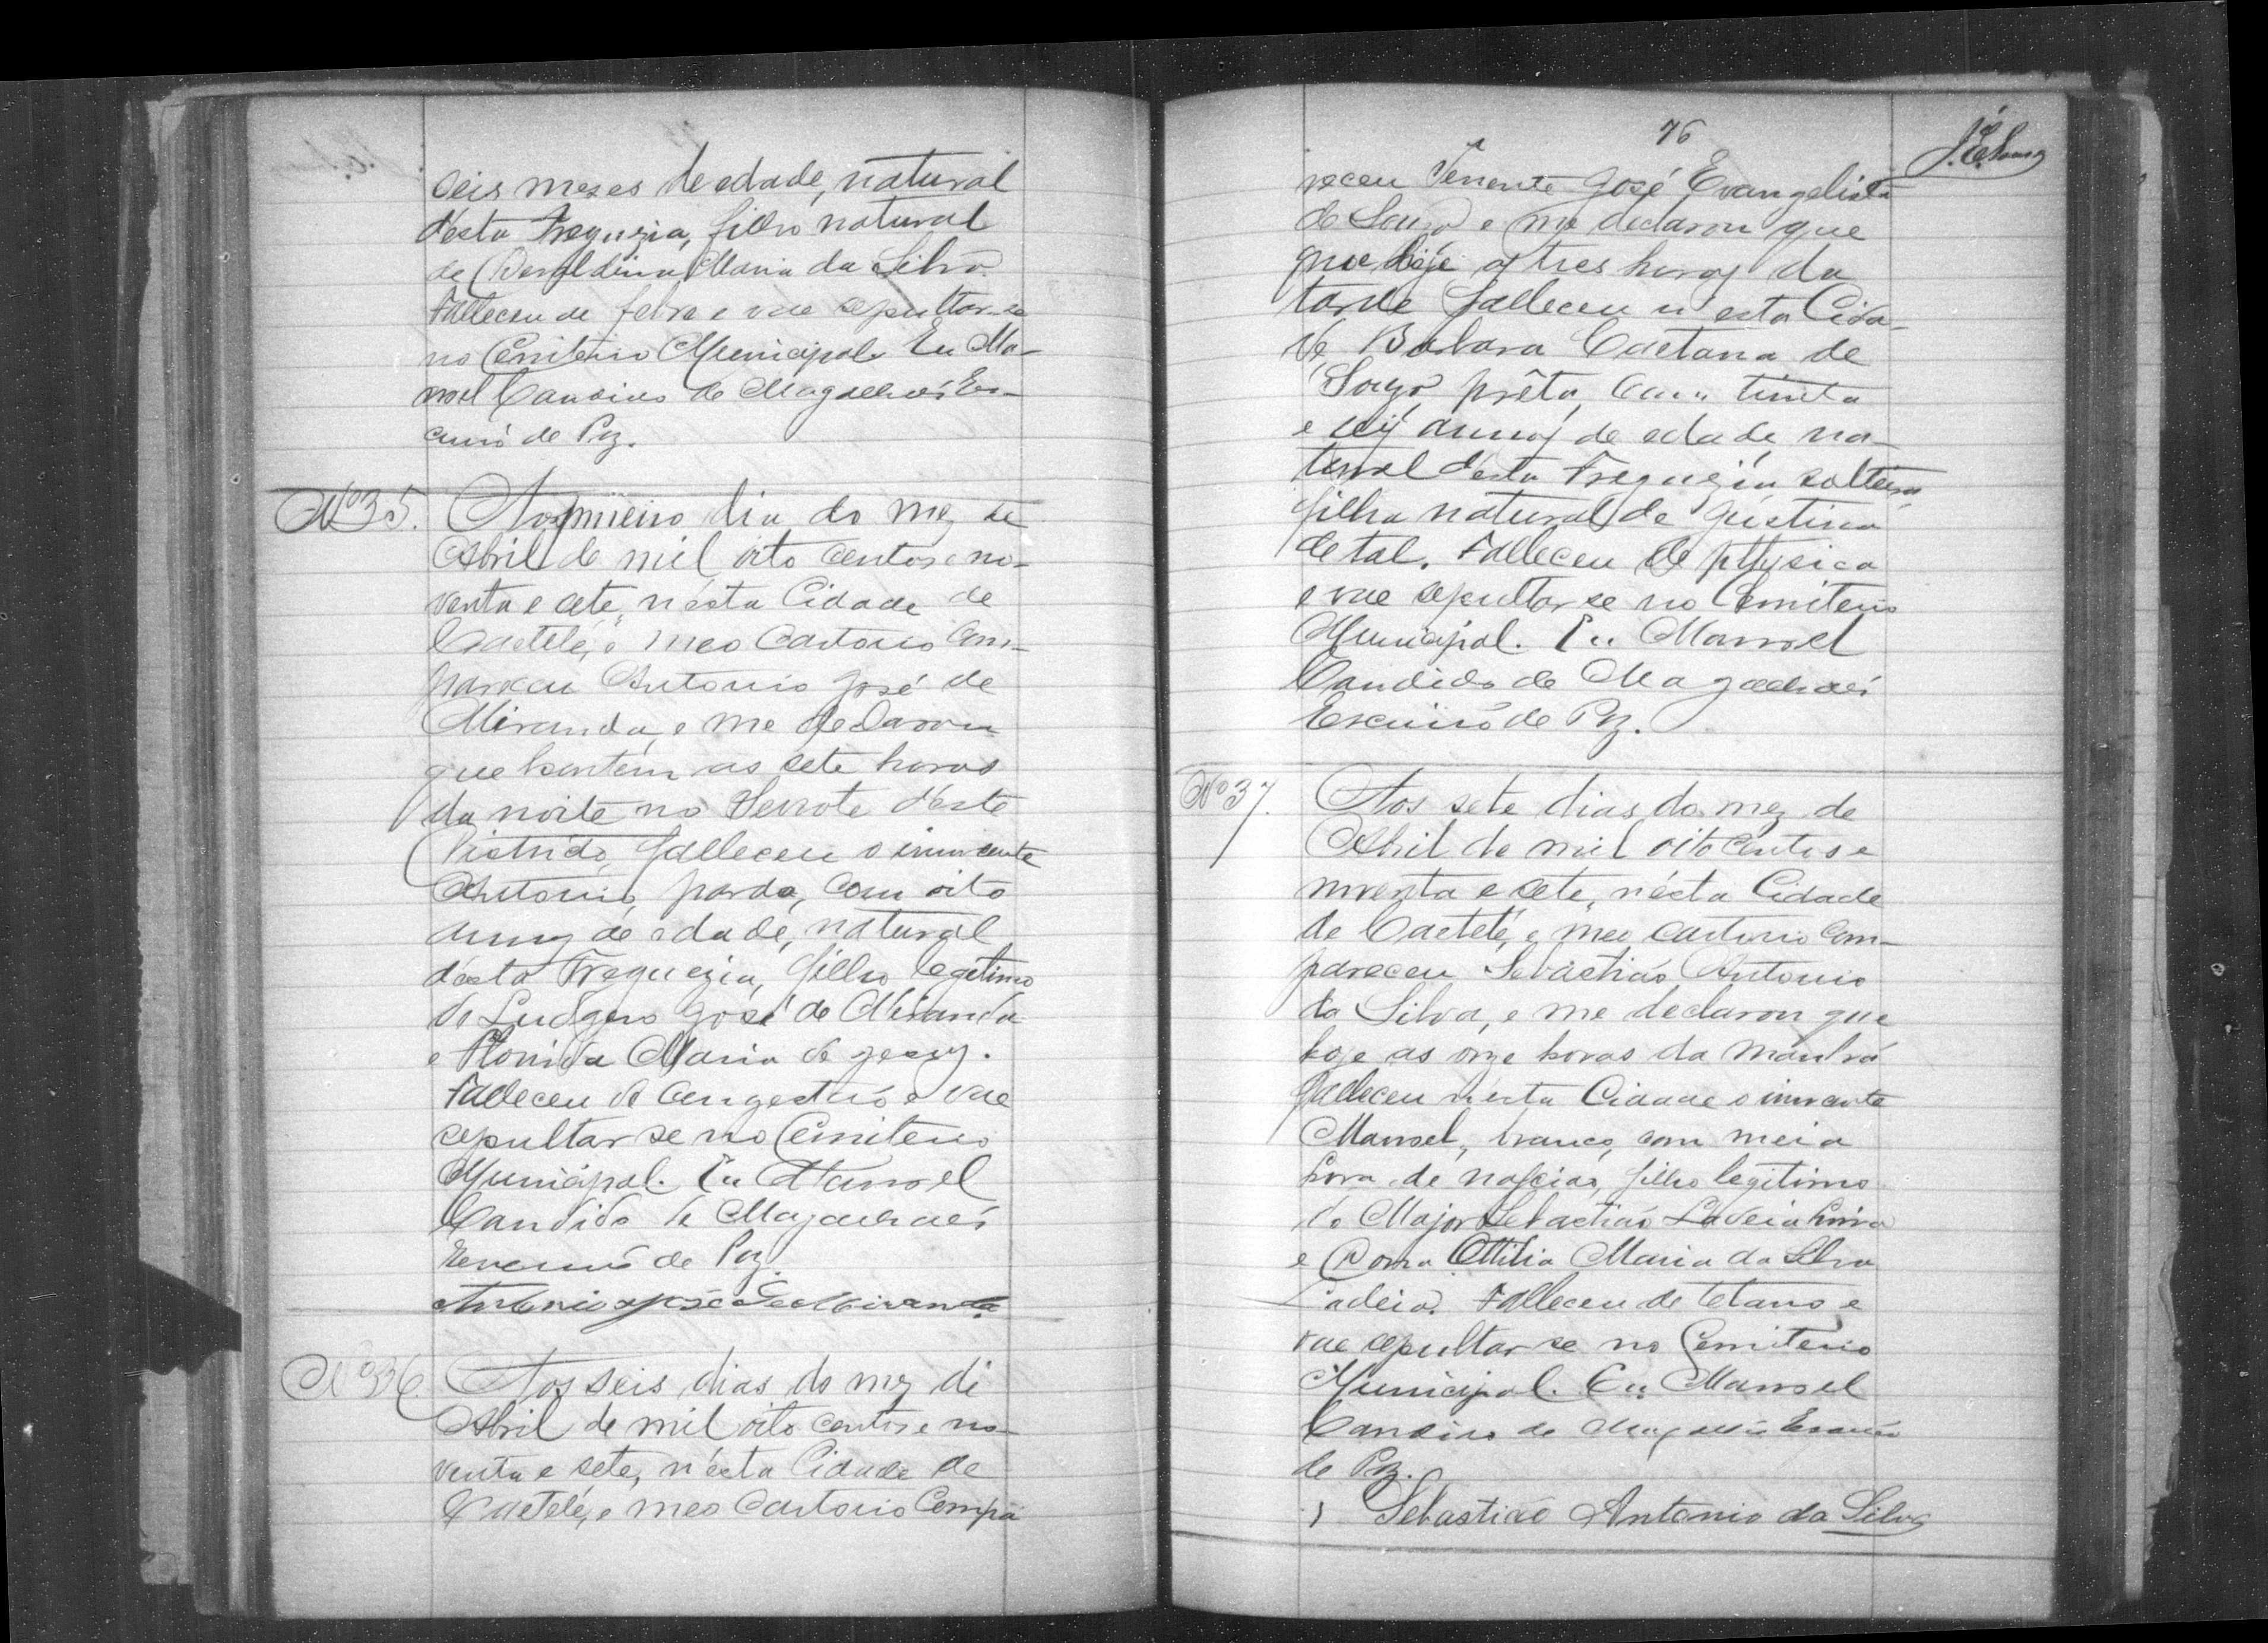 seis mezes de edade, natural
d'esta Freguezia, filho natural
de Maria da Silva.
Falleceu de febre e vae sepultar-se
no Cemiterio Municipal. Eu Ma-
noel Candido de Magalhães Es-
crivão de Paz.
Nº 35. Ao primeiro dia do mez de
Abril de mil oito centos e no-
venta e sete, n'esta Cidade de
Caeteté, e meo Cartorio com-
pareceu Antonio José de
Miranda, e me declarou
que hontem as sete horas
da noite no Serrote d'este
Districto, falleceu o innocente
Antonio, pardo, com oito
annos de edade, natural
d'esta Freguezia, filho legitimo
de Ludgero José de Miranda
e Florinda Maria de Jesus.
Falleceu de congestão e vae
sepultar se no Cemiterio
Municipal. Eu Manoel
Candido de Magalhães
Escrivão de Paz.
Antonio José de Miranda
Nº 36 Aos seis dias do mez de
Abril de mil oito centos e no-
venta e sete, n'esta Cidade de
Caeteté, e meo Cartorio Compa
76
receu Tenente José Evangelista
de Souza e me declarou que
que hoje as tres horas da
tarde falleceu n'esta Cida-
de, Barbara Caetana de
Souza, prêta, com trinta
e seis annos de edade, na-
tural d'esta Freguezia solteira
filha natural de Justina
de tal. Falleceu de phtysica
e vae sepultar se no Cemiterio
Municipal. Eu Manoel
Candido de Magalhães
Escrivão de Paz.
Nº 37. Aos sete dias do mez de
Abril de mil oito centos e
noventa e sete, n'esta Cidade
de Caeteté, e meu cartorio com-
pareceu Sebastião Antonio
da Silva, e me declarou que
hoje as onze horas da manhã
falleceu n'esta Cidade o innocente
Manoel, branco, com meia
hora de nascido, filho legitimo
do Major Sebastião Ladeia
e Dona Ottilia Maria da Silva
Ladeia. Falleceu de tetano e
vae sepultar se no Cemiterio
Municipal. Eu Manoel
Candido de Magalhães Escrivão
de Paz.
Sebastião Antonio da Silva